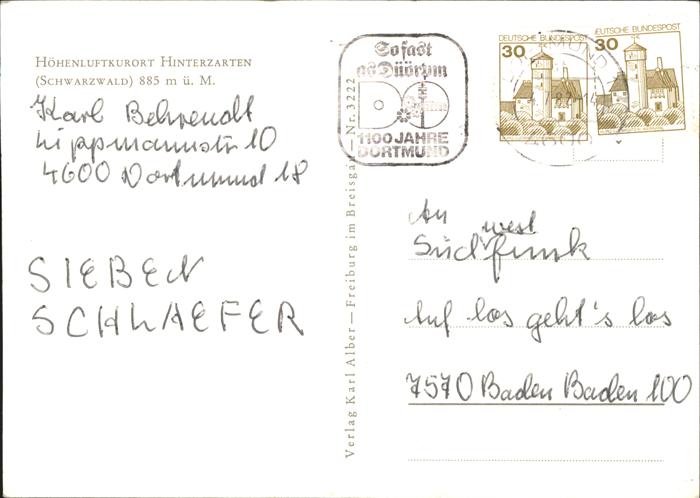 HÖHENLUFTKURORT HINTERZARTEN
(SCHWARZWALD) 885 m ü. M.
Karl Behrendt
Lippmannstr 10
4600 Dortmund 18
SIEBEN
SCHLAEFER
Verlag Karl Alber – Freiburg im Breisgau Nr. 3222
So fast
as Düörpm
1100 JAHRE
DORTMUND
DORTMUND
4600
DEUTSCHE BUNDESPOST
30
DEUTSCHE BUNDESPOST
30
An
west
Südfunk
Auf los geht's los
7570 Baden Baden 100